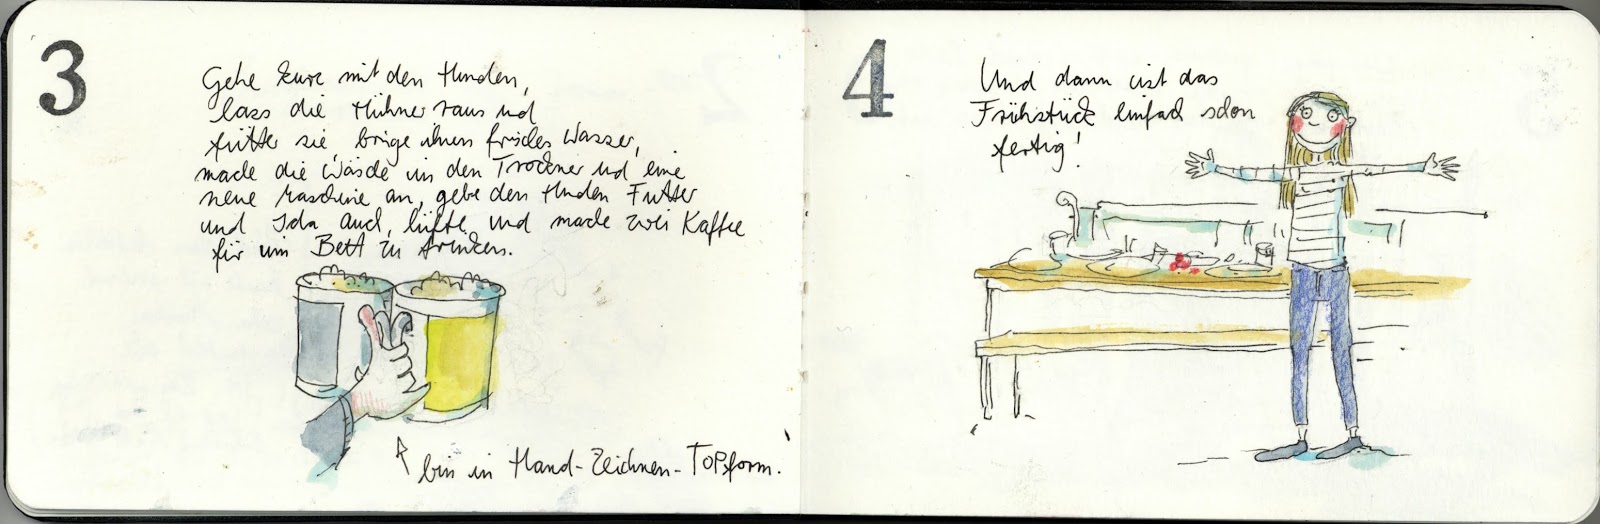 3
Gehe kurz mit den Hunden,
lass die Hühner raus und
fütter sie, bringe ihnen frisches Wasser,
mache die Wäsche in den Trockner und eine
neue Maschine an, gebe den Hunden Futter
und Ida auch, lüfte und mache zwei Kaffee
für im Bett zu trinken.
bin in Hand-Zeichnen-TOPform.
4
Und dann ist das
Frühstück einfach schon
fertig!